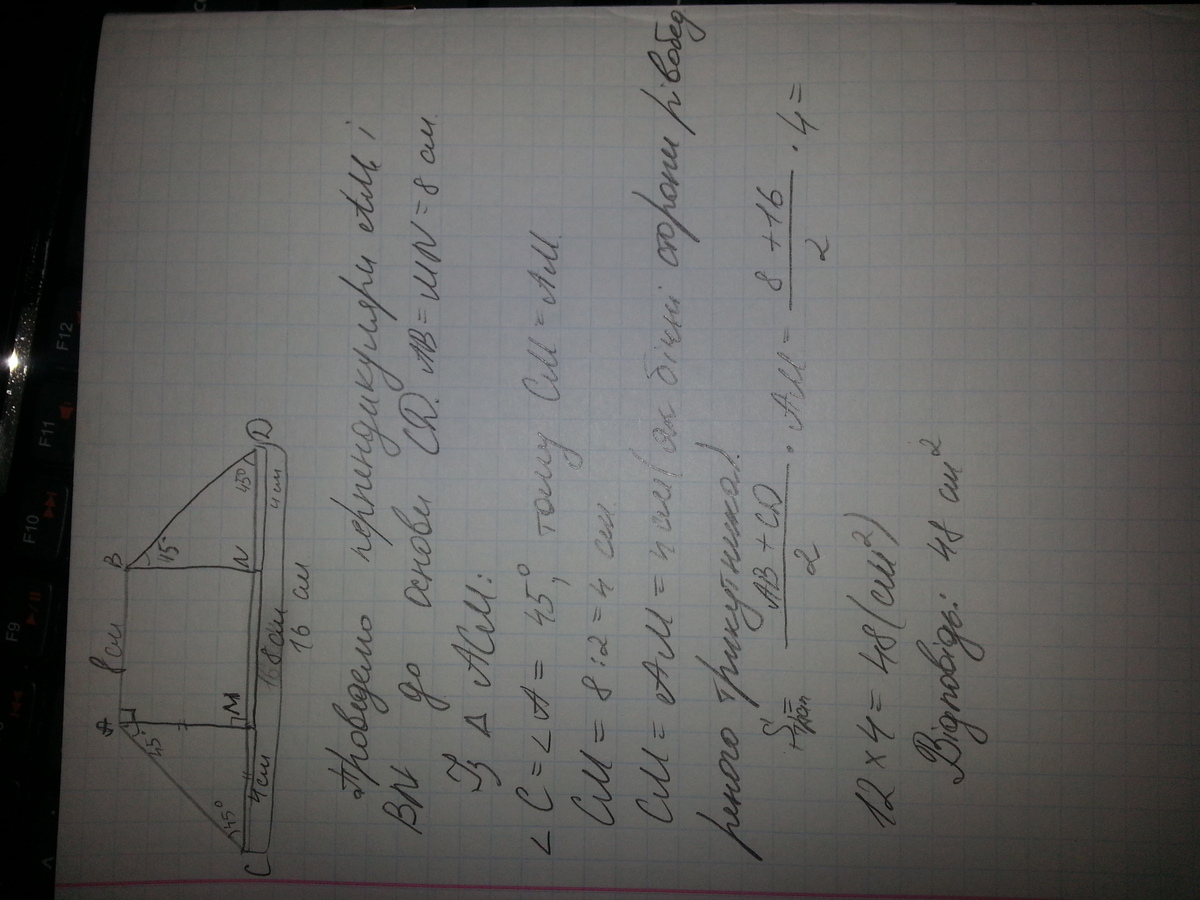 A 8 см B
45° 45°
45° 45°
C 4 см M 8 см N 4 см D
16 см
Проведемо перпендикуляри AM і
BN до основи CD. AB = MN = 8 см.
Із Δ ACM:
∠ C = ∠ A = 45°, тому CM = AM.
CM = 8 : 2 = 4 см
CM = AM = 4 см (як бічні сторони рівобед
реного трикутника).
Sтрап = AB + CD / 2 · AM = 8 + 16 / 2 · 4 =
12 × 4 = 48 (см²)
Відповідь: 48 см²
F9
F10
F11
F12